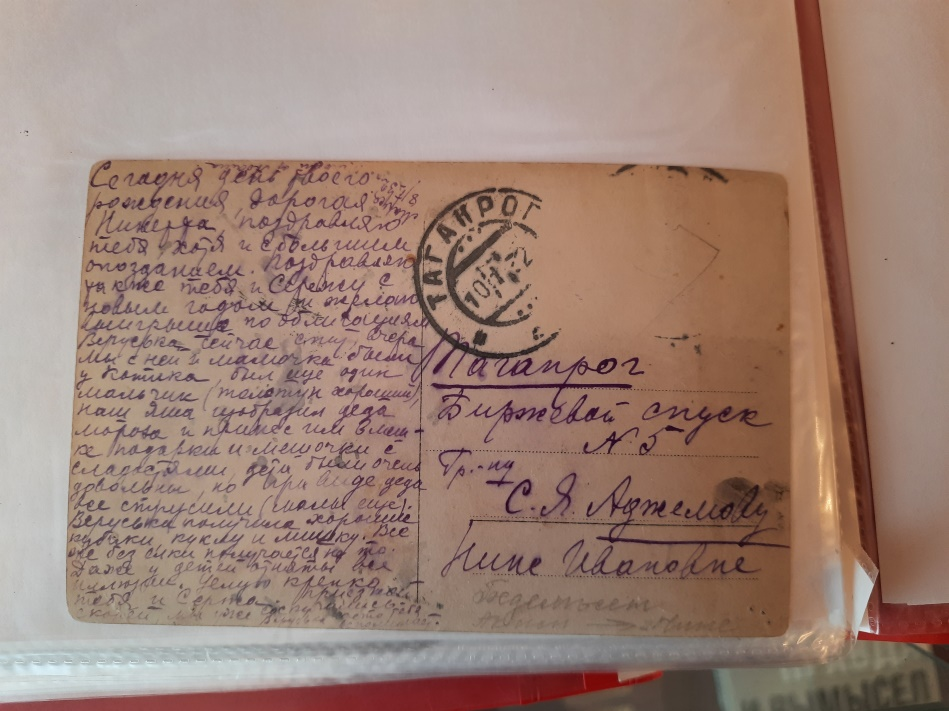 Сегодня день твоего
рождения дорогая
поздравляю
тебя хотя и с большим
опозданием. Поздравляю
также тебя и Сережу с
новым годом и желаю
выигрыша по облигациям
Веруська сейчас спит, вчера
мы с ней и мамочка были
у Котика, был еще один
мальчик (толстун хороший),
наш Яша изобразил деда
мороза и принес им в меш-
ке подарки и мешочки с
сладостями, дети были очень
довольны, но при виде деда
все струсили (малы еще).
Веруська получила хорошие
кубики, куклу и мишку. Все
же без получается не то.
Даже у детей отняты все
Целую крепко
тебя и Сержа
ТАГАНРОГ
10.1
Таганрог
Биржевой спуск
N 5
Гр-ну
С. Я. Аджемову
Нине Ивановне
И ВЫМЫСЕЛ